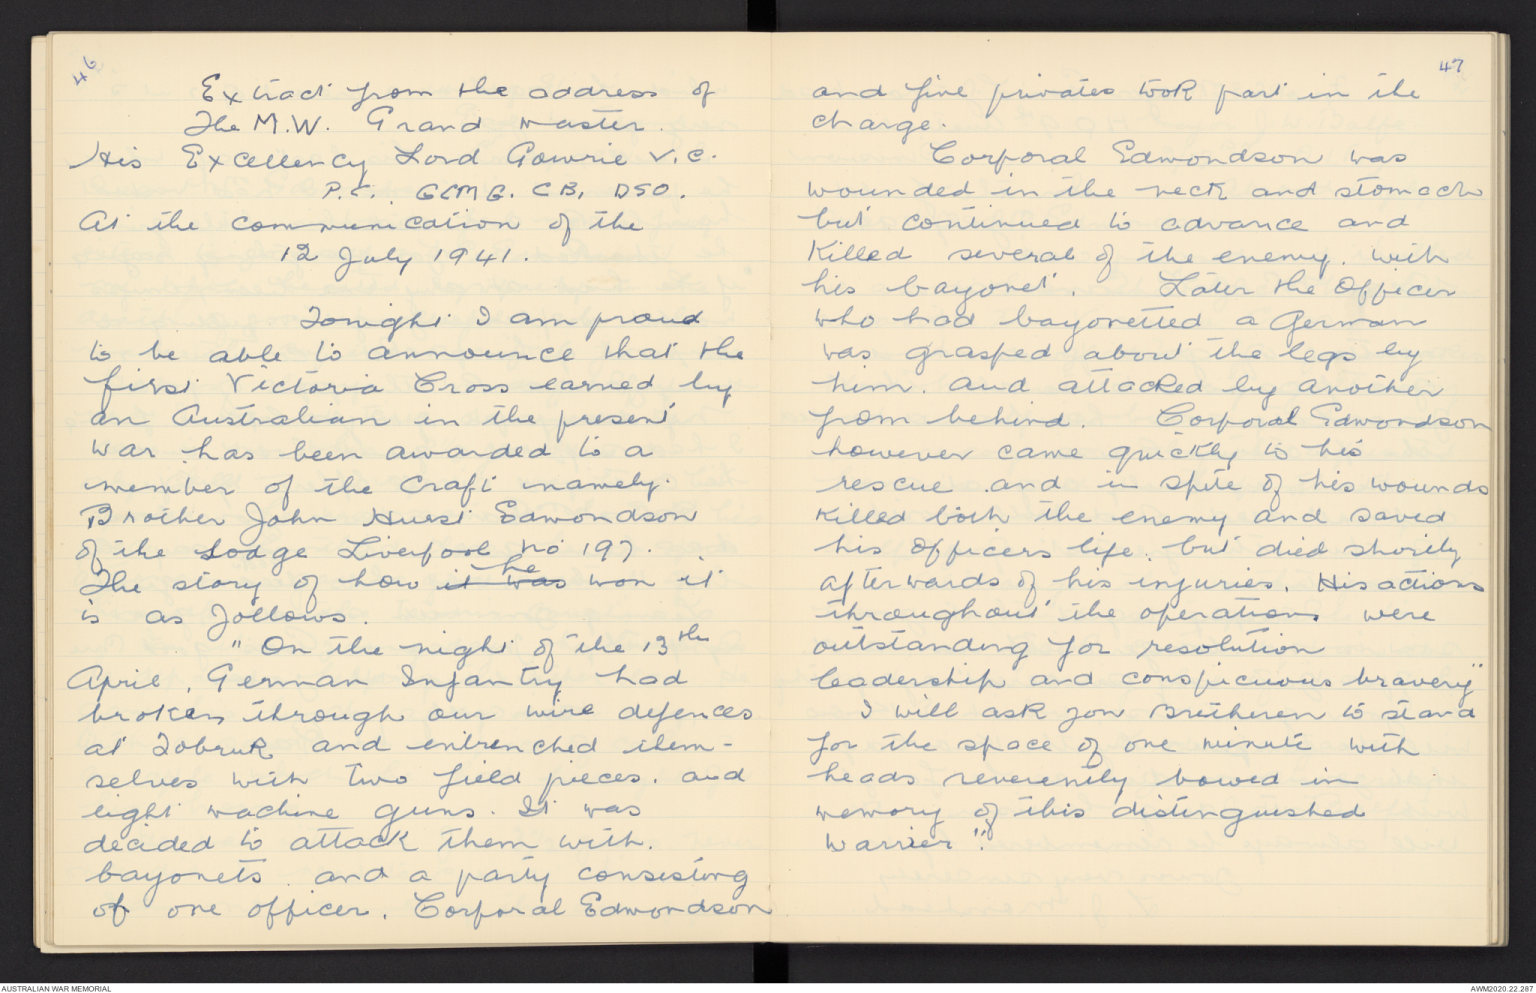 46
Extract from the address of
The M.W. Grand Master.
His Excellency Lord Gowrie V.C.
P.C. GCMG. CB, DSO.
At the communication of the
12 July 1941.
Tonight I am proud
to be able to announce that the
first Victoria Cross earned by
an Australian in the present
war has been awarded to a
member of the Craft namely.
Brother John Hurst Edmondson
of the Lodge Liverpool No 197.
The story of how it was he won it
is as follows.
" On the night of the 13th
April, German Infantry had
broken through our wire defences
at Tobruk and entrenched them-
selves with two field pieces. and
eight machine guns. It was
decided to attack them with.
bayonets and a party consisting
of one officer, Corporal Edmondson
47
and five privates took part in the
charge.
Corporal Edmondson was
wounded in the neck and stomach
but continued to advance and
Killed several of the enemy. with
his bayonet. Later the Officer
who had bayonetted a German
was grasped about the legs by
him. and attacked by another
from behind. Corporal Edmondson
however came quickly to his
rescue and in spite of his wounds
killed both the enemy and saved
his Officers life. but died shortly
afterwards of his injuries. His actions
throughout the operations were
outstanding for resolution
leadership and conspicuous bravery"
I will ask you Bretheren to stand
for the space of one minute with
heads reverently bowed in
memory of this distinguished
Warrier".
AUSTRALIAN WAR MEMORIAL
AWM2020.22.287